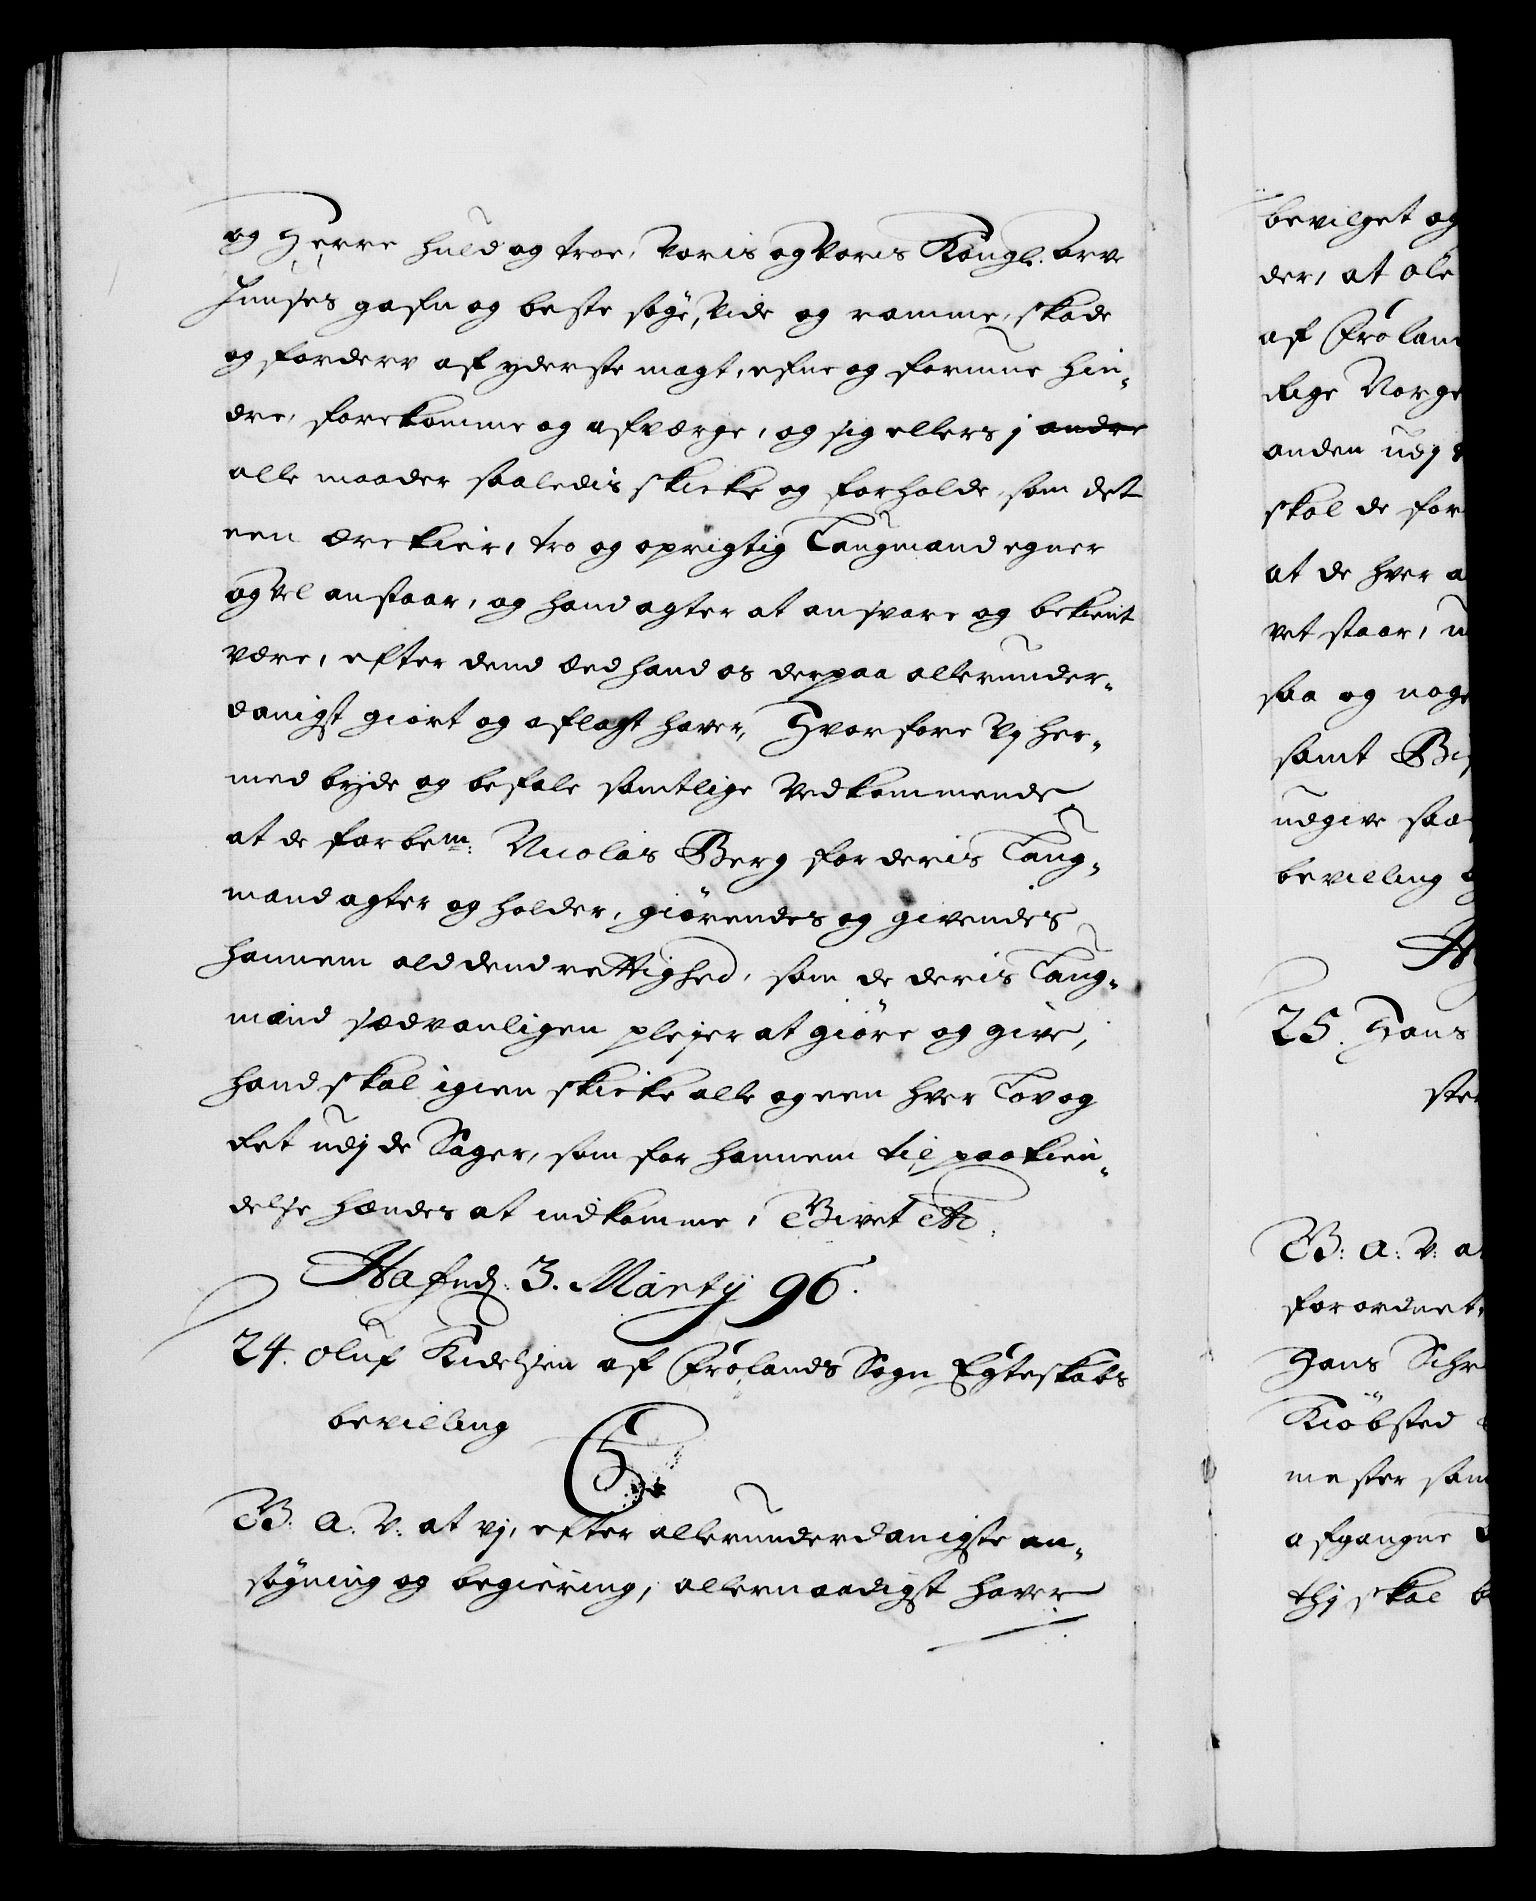 og Herre huld og troe, Voris og Voris Kongl. arve
Huuses gafn og beste søge, Vide og ramme, skade
og forderv af yderste magt, efne og formue hin-
dre, forekomme og afværge, og sig ellers j andre
alle maader saaledis skicke og forholde, som det
een ærekier, tro og oprigtig Laugmand egner
og vel anstaar, og hand agter at ansvare og bekient
være, efter dend Eed hand os derpaa allerunder-
danigst giort og aflagt haver, Hvorfore Vj her-
med byde og befale samtlige Vedkommende
at de forbem: Nicolas Berg for deris Laug-
mand agter og holder, giørendes og givendes
hannem ald dend rettighed, som de deris Laug-
mand sædvanligen plejer at giøre og give,
hand skal igien skicke alle og een hver Lov og
Ret udj de Sager, som for hannem til paakien-
delse hændes at indkomme, Givet etc.
Hafnæ: 3. Martij 96.
24. Oluf Kidelsen af Frølands Sogn Egteskabs
bevilling
G. A. V: at vj, efter allerunderdanigste an-
søgning og begiering, allernaadigst haver
bevilget og
der, at Ole
af Frølan
Rige Norge
anden udj
skal de for
at de hver a
vet staar, u
saa og noge
samt Bis
udgive saa
bevilling o
25. Hans
ste
G: A: V: a
forordnet,
Hans Schr
Kiöbsted
mester sam
afgangne
thj skal b